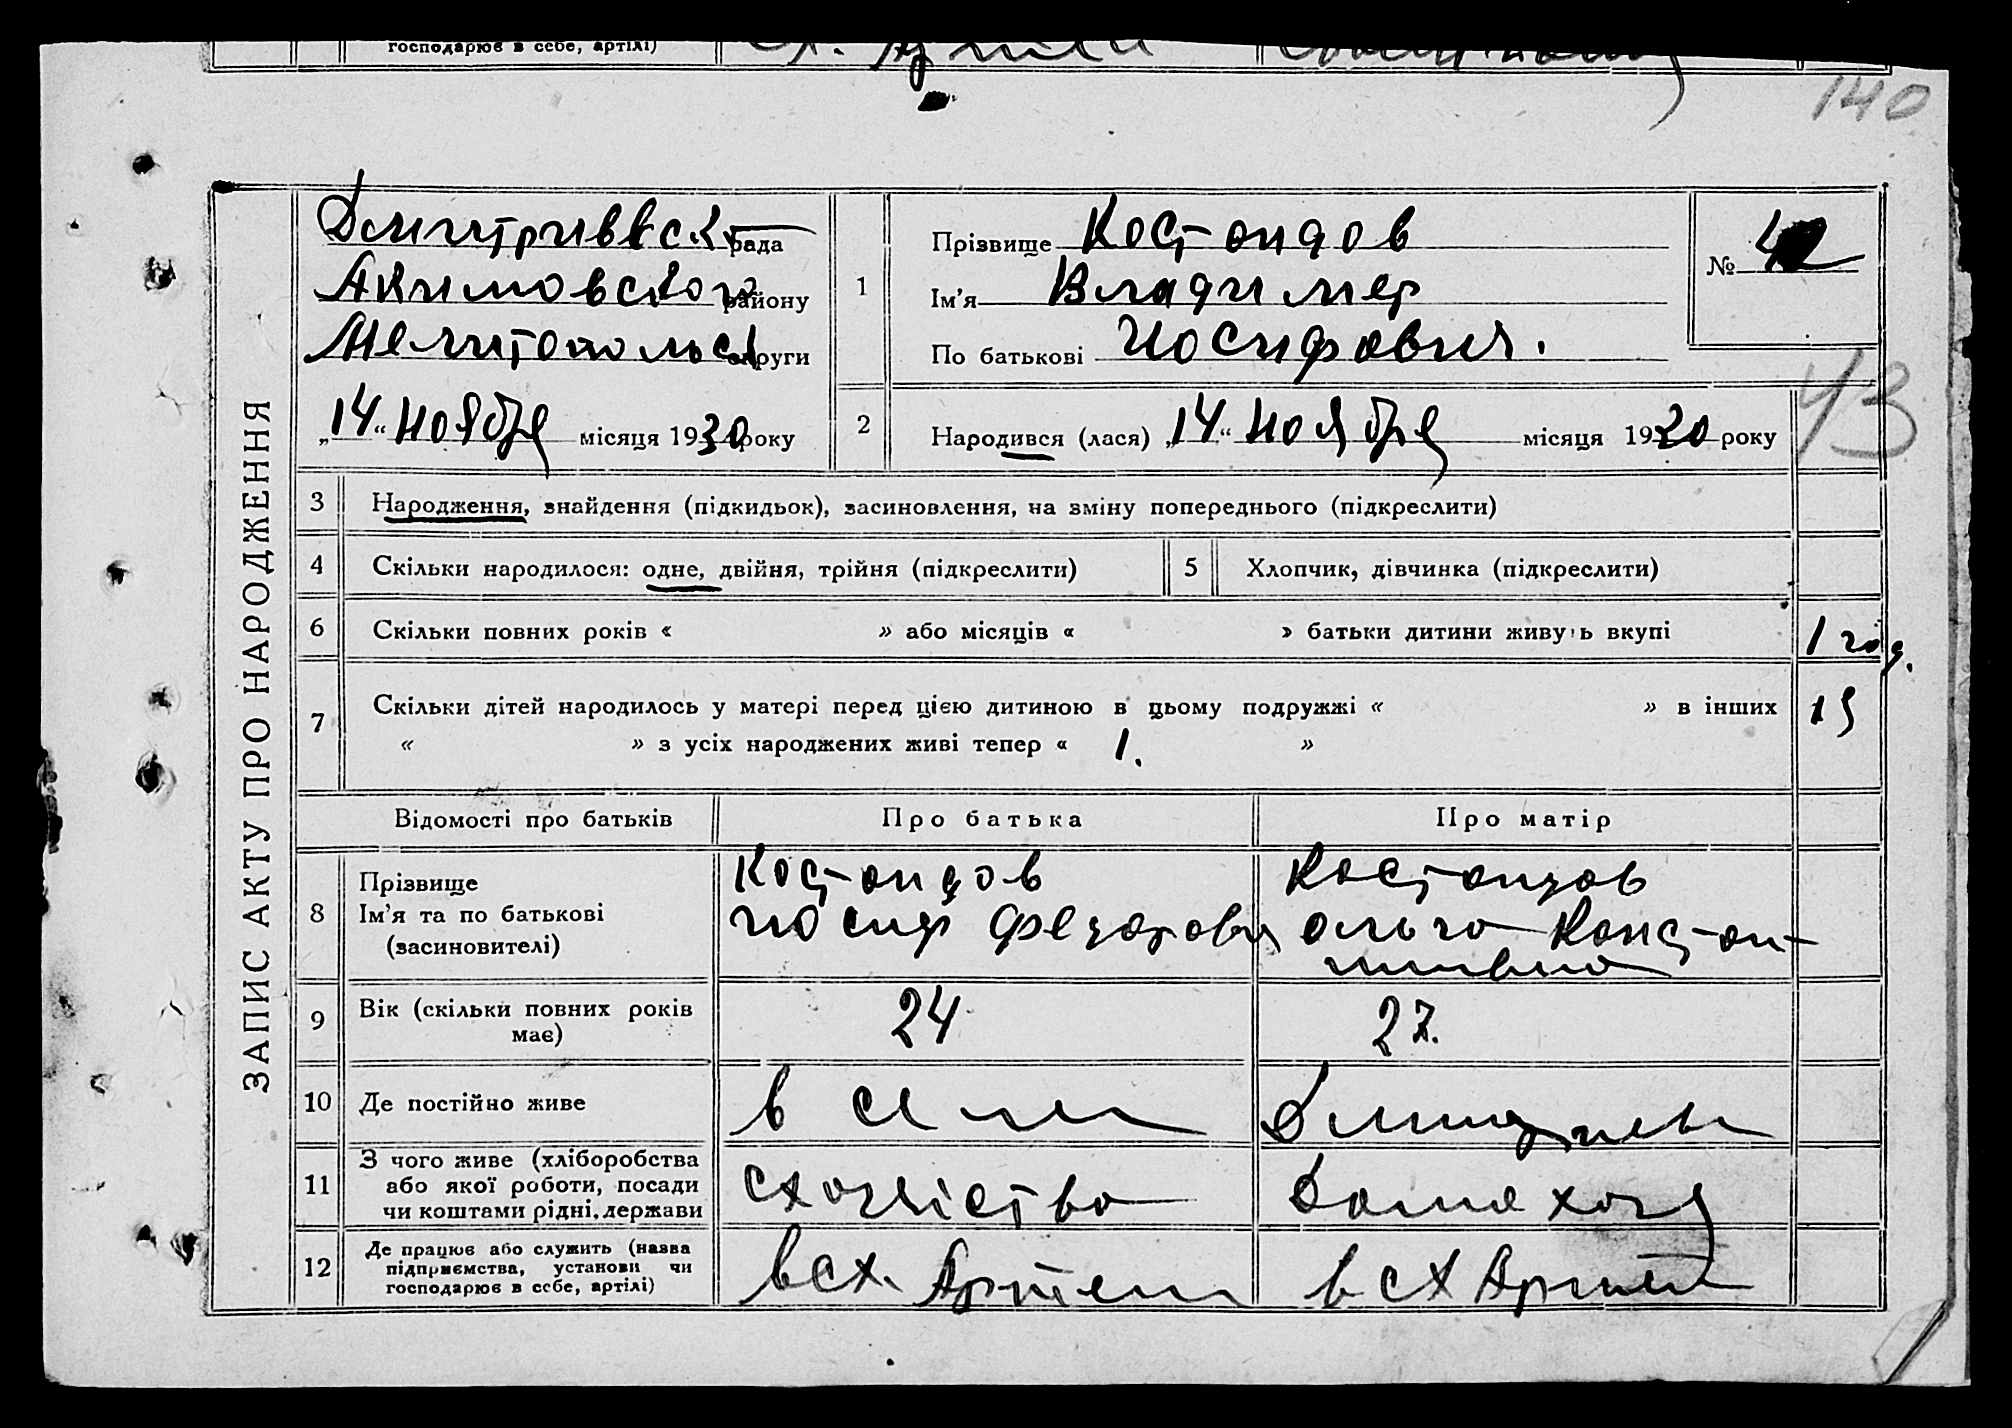 господарює в себе, артілі)
140
ЗАПИС АКТУ ПРО НАРОДЖЕННЯ
Дмитриевск рада
Акимовского району
Мелитопольск округи
„14“ ноября місяця 1930 року
1
Прізвище Костандов
Ім'я Владимер
По батькові Иосифович.
№ 42
43
2
Народився (лася) „14“ ноября місяця 1930 року
3 Народження, знайдення (підкидьок), засиновлення, на зміну попереднього (підкреслити)
4 Скільки народилося: одне, двійня, трійня (підкреслити) 5 Хлопчик, дівчинка (підкреслити)
6 Скільки повних років « » або місяців « » батьки дитини живуть вкупі 1 год.
7 Скільки дітей народилось у матері перед цією дитиною в цьому подружжі « » в інших
« » з усіх народжених живі тепер « 1. »
Відомості про батьків Про батька Про матір
8 Прізвище
Ім'я та по батькові
(засиновителі)
Костандов
Иосиф Федорович
Костандов
Ольга Констан-
тиновна
9 Вік (скільки повних років
має)
24
27.
10 Де постійно живе в селе Дмитриевк
11 З чого живе (хліборобства
або якої роботи, посади
чи коштами рідні, держави
Домохоз
12 Де працює або служить (назва
підприємства, установи чи
господарює в себе, артілі)
в сх. Артели
в сх Артели